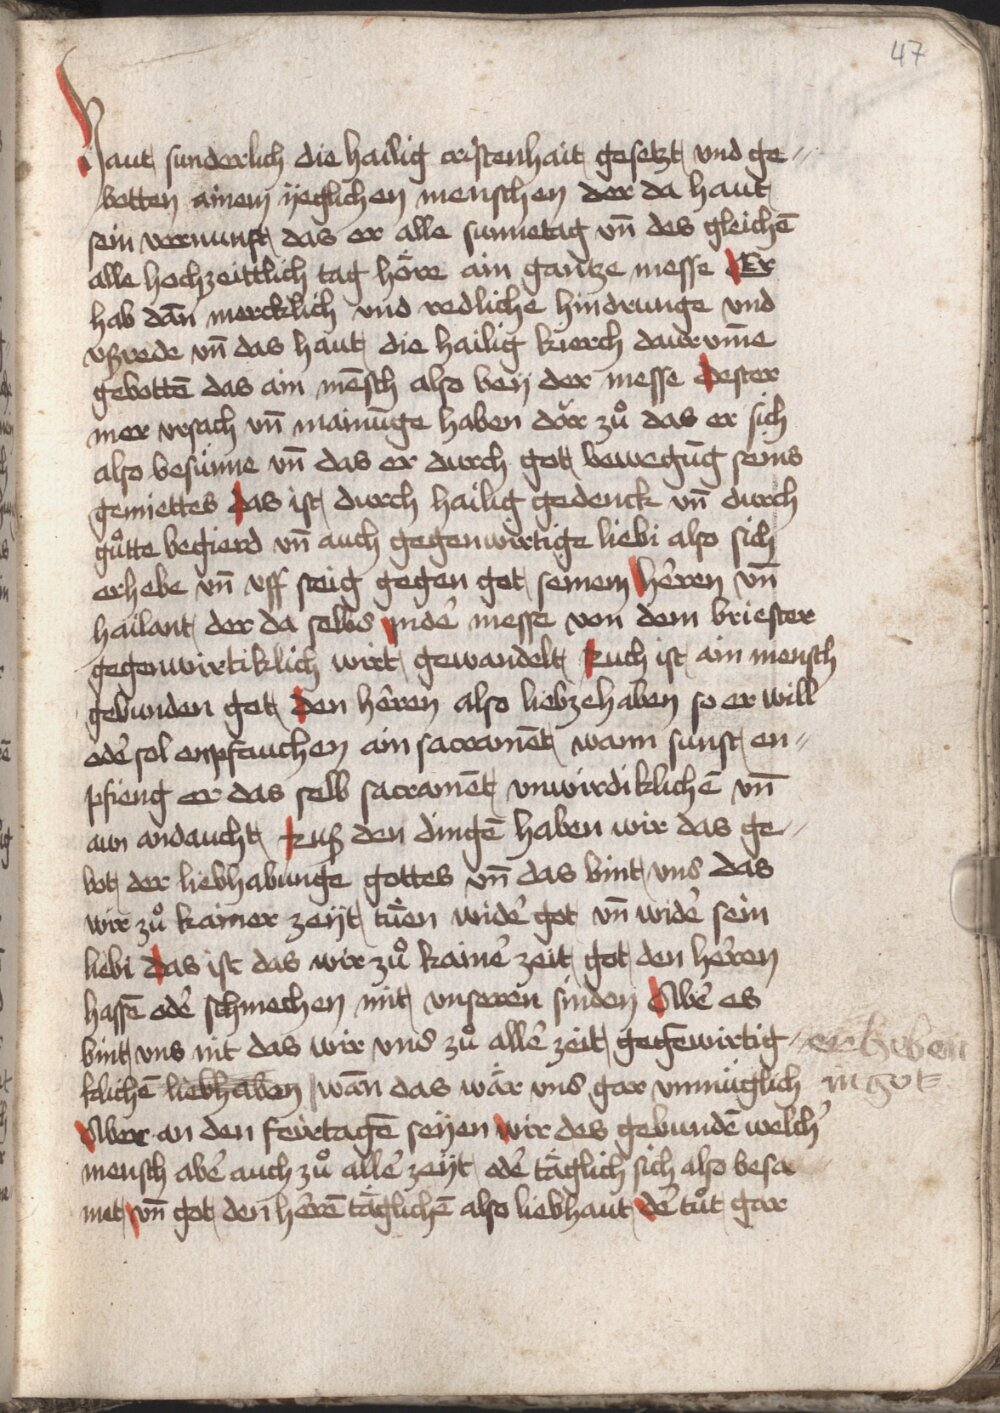 47
Haut sunderlich die hailig cristenhait gesetzt und ge〃
botten ainem yeglichen menschen der da haut
sein vernunft das er alle sunnetag vn̄ des gleichē
alle hochzeittlich tag höre ain gantze messe Er
hab dān mercklich vnd redliche hindrunge vnd
vßrede vn̄ das haut die hailig kierch daurvm̄e
gebottē das ain mēsch also bey der messe dester
mer vrsach vn̄ mainūge haben dör zuͦ das er sich
also besünne vn̄ das er durch got bewegūg seins
gemiettes das ist durch hailig gedenck vn̄ durch
guͦtte begierd vn̄ auch gegenwirtige liebi also sich
erhebe vn̄ vff steig gegen got seinem herren vn̄
hailant der da selbs indē messe von dem briester
gegenwirtiklich wirt gewandelt Auch ist ain mensch
gebunden got den hēren also liebzehaben so er will
odē sol enpfauchen ain sacramēt wann sunst en〃
pfieng er das selb sacramēt vnwirdiklichē vn̄
aun andaucht Auß den dingē haben wir das ge〃
bot der liebhabunge gottes vn̄ das bint vns das
wir zuͦ kainer zeyt tüen widē got vn̄ widē sein
liebi das ist das wir zuͦ kainē zeit got den hēren
hassē odē schmechen mit vnseren sinden Abē es
bint vns nit das wir vns zuͦ allē zeit gegēwirtig
klichē liebhaben wān das wär vns gar vnmüglich
erheben
in got
Aber an den feirtagē seyen wir des gebundē welch̄
mensch abē auch zuͦ allē zeyt odē täglich sich also besa
met vn̄ got den hērē täglichē also liebhaut dē tuͦt gar